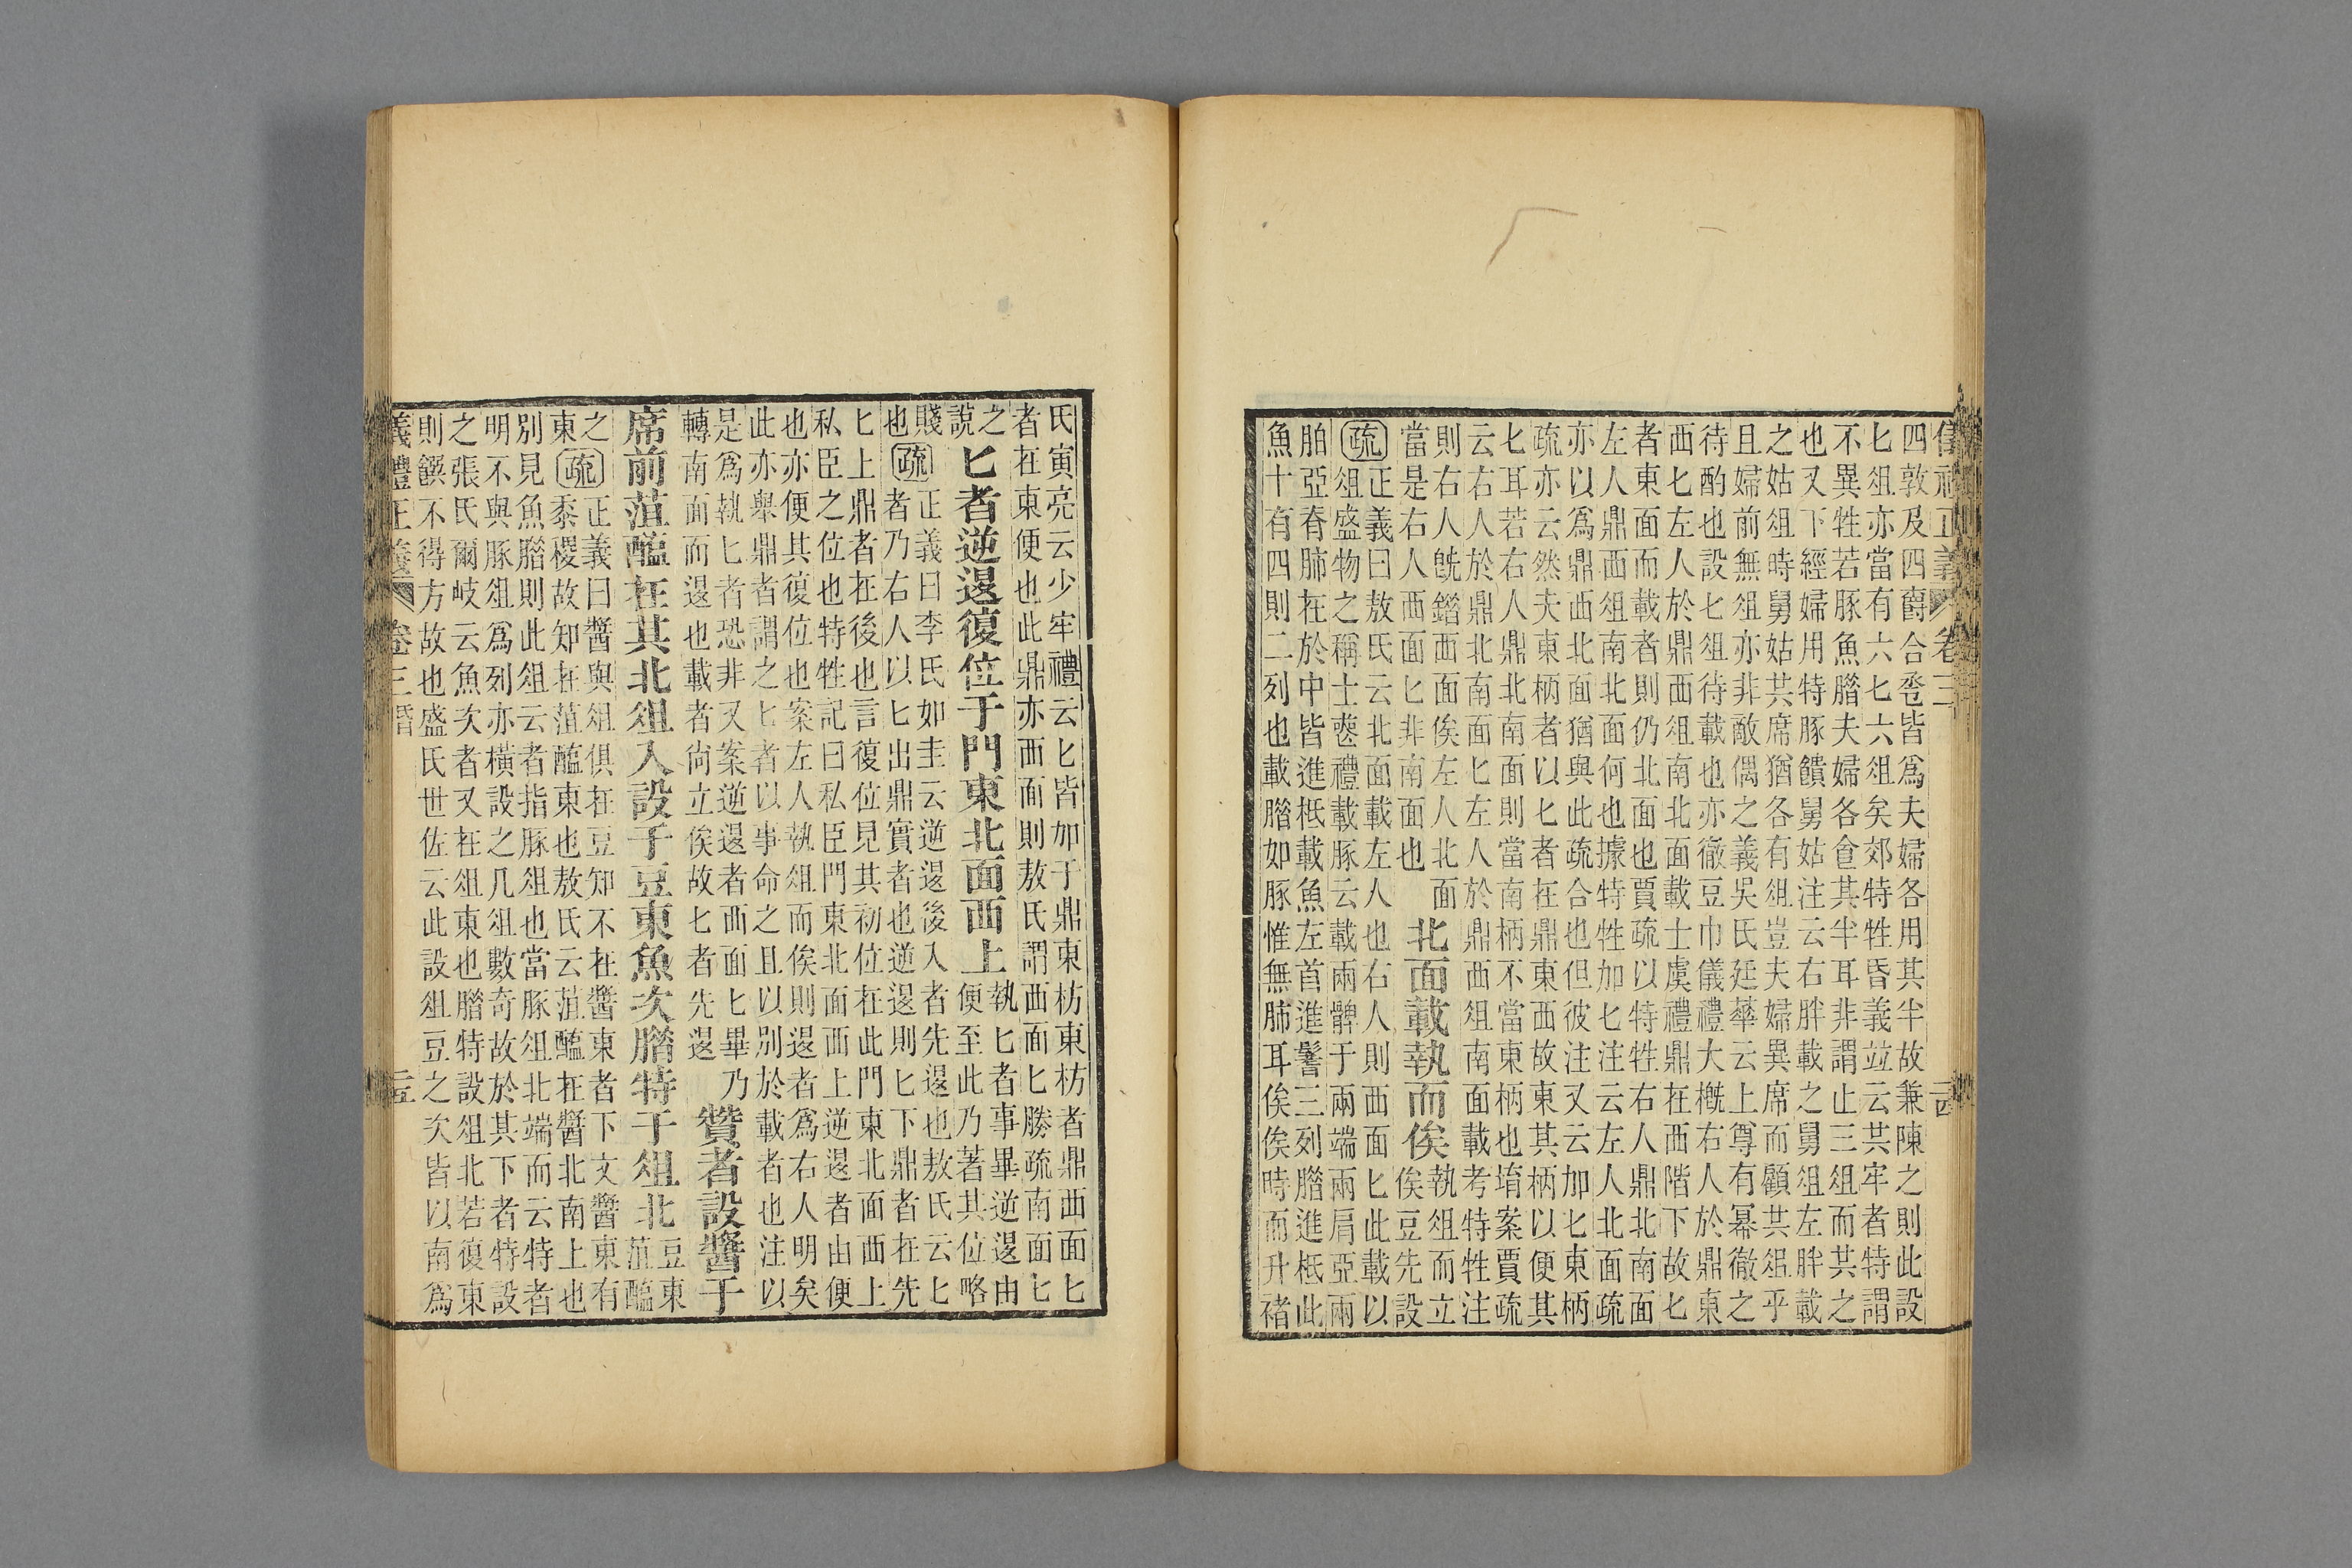 正義 卷三 二四
四敦及四爵合巹皆爲夫婦各用其半故兼陳之則此設
匕俎亦當有六匕六俎矣郊特牲昏義竝云共牢者特謂
不異牲若豚魚腊夫婦各食其半耳非謂止三俎而其之
也又下經婦用特豚饋舅姑注云右胖載之舅俎左胖載
之姑俎時舅姑共席猶各有俎豈夫婦異席而顧共俎乎
且婦前無俎亦非敵偶之義吳氏廷華云上尊有冪徹之
待酌也設匕俎待載也亦徹豆巾儀禮大概右人於鼎東
西匕左人於鼎西俎南北面載士虞禮鼎在西階下故匕
者東面而載者則仍北面也賈疏以特牲右人鼎北南面
左人鼎西俎南北面何也據特牲加匕注云左人北面疏
亦以爲鼎西北面猶與此疏合也但彼注又云加匕東柄
疏亦云然夫東柄者以匕者在鼎東西故東其柄以便其
匕耳若右人鼎北南面則當南柄不當東柄也堉案賈疏
云右人於鼎北南面匕左人於鼎西俎南面載考特牲注
則右人旣錯西面俟左人北面
當是右人西面匕非南面也
北面載執而俟
執俎而立
俟豆先設
疏正義曰敖氏云北面載左人也右人則西面匕此載以
俎盛物之稱士喪禮載豚云載兩髀于兩端兩肩亞兩
胉亞脊肺在於中皆進柢載魚左首進鬐三列腊進柢此
魚十有四則二列也載腊如豚惟無肺耳俟俟時而升褚
氏寅亮云少牢禮云匕皆加于鼎東枋東枋者鼎西面匕
者在東便也此鼎亦西面則敖氏謂西面匕勝疏南面匕
之
說
匕者逆退復位于門東北面西上
執匕者事畢逆退由
便至此乃著其位略
賤
也
疏正義曰李氏如圭云逆退後入者先退也敖氏云匕
者乃右人以匕出鼎實者也逆退則匕下鼎者在先
匕上鼎者在後也言復位見其初位在此門東北面西上
私臣之位也特牲記曰私臣門東北面西上逆退者由便
也亦便其復位也案左人執俎而俟則退者爲右人明矣
此亦舉鼎者謂之匕者以事命之且以別於載者也注以
是爲執匕者恐非又案逆退者西面匕畢乃
轉南面而退也載者尙立俟故匕者先退
贊者設醬于
席前菹醢在其北俎入設于豆東魚次腊特于俎北
豆東
菹醢
之
東
疏正義曰醬與俎俱在豆知不在醬東者下文醬東有
黍稷故知在菹醢東也敖氏云菹醢在醬北南上也
別見魚腊則此俎云者指豚俎也當豚俎北端而云特者
明不與豚俎爲列亦橫設之几俎數奇故於其下者特設
之張氏爾岐云魚次者又在俎東也腊特設俎北若復東
則饌不得方故也盛氏世佐云此設俎豆之次皆以南爲
義禮正義 卷三 昏 二五